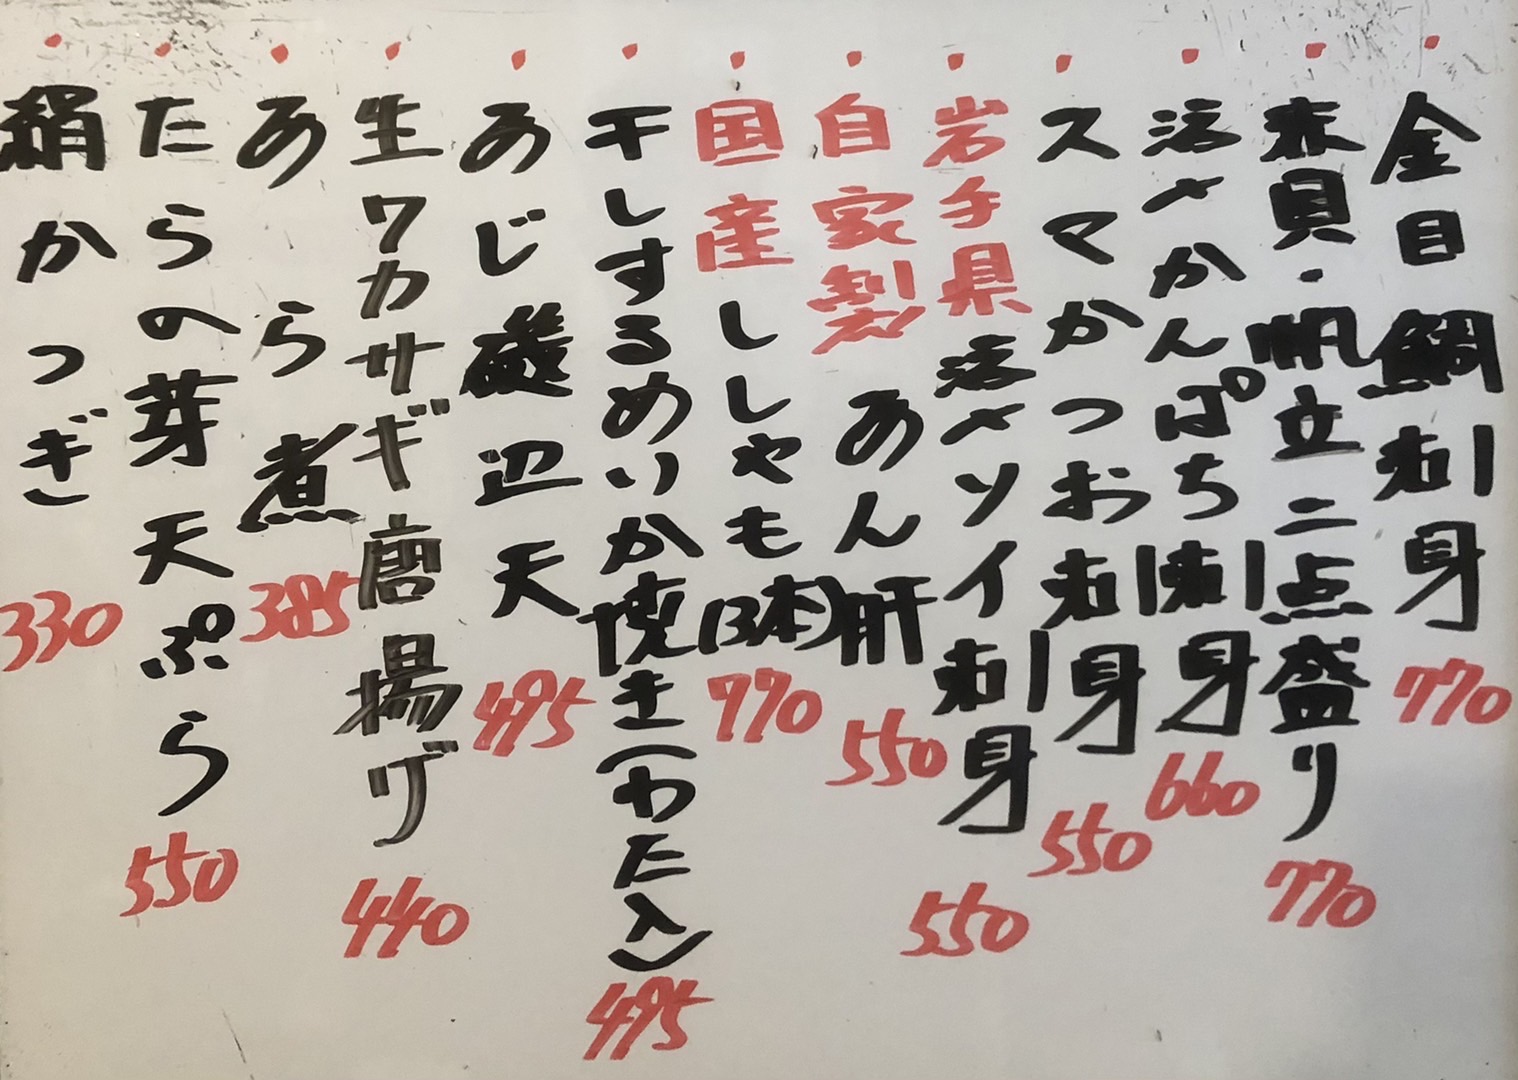 金目鯛刺身 770
赤貝・帆立二点盛り 770
活〆かんぱち刺身 660
スマかつお刺身 550
岩手県活〆ソイ刺身 550
自家製あん肝 550
国産ししゃも(3本) 770
干しするめいか焼き(わた入) 495
あじ磯辺天 495
生ワカサギ唐揚げ 440
あら煮 385
たらの芽天ぷら 550
絹かつぎ 330